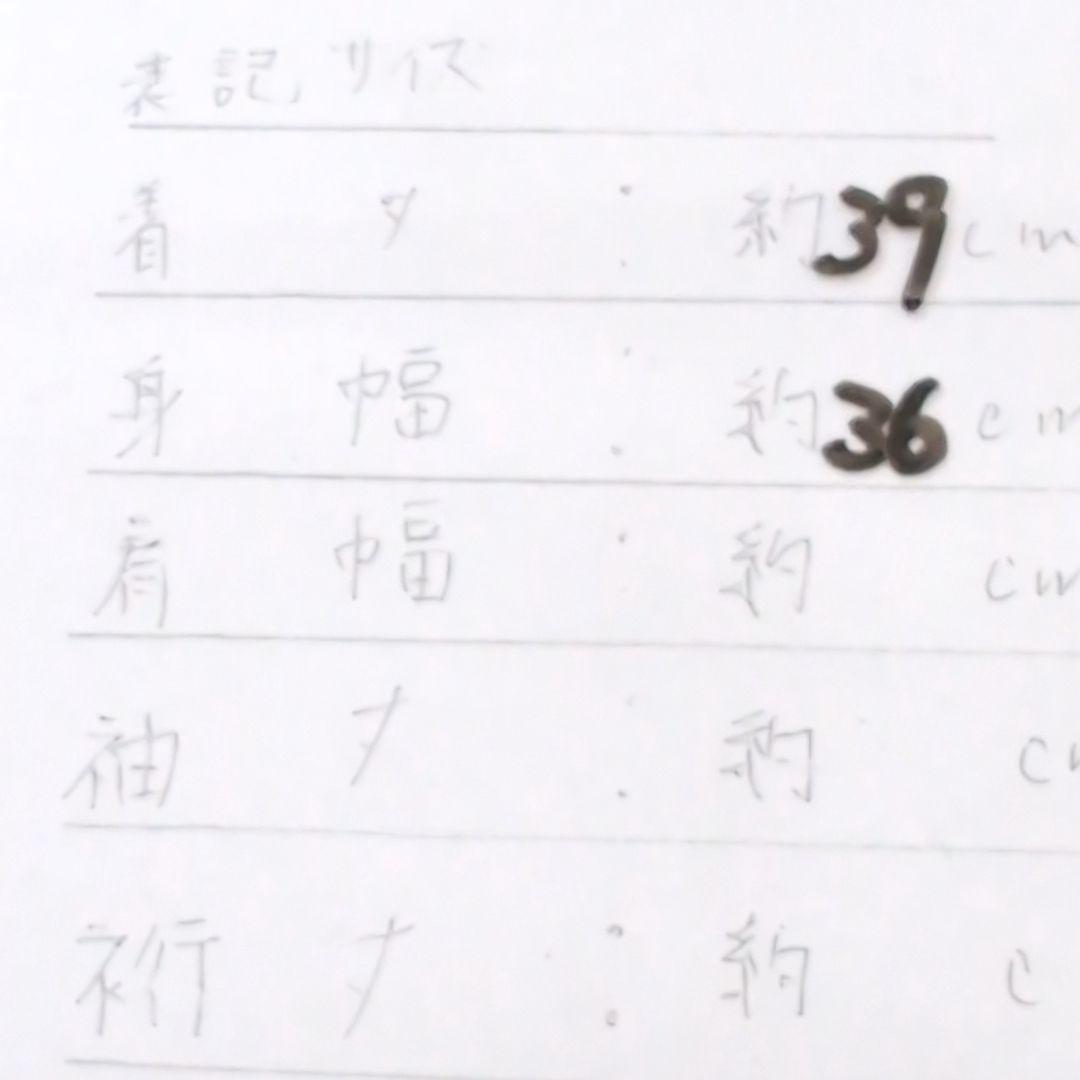 表記サイズ
着 丈 : 約39cm
身 幅 : 約36cm
肩 幅 : 約 cm
袖 丈 : 約 c
裄 丈 : 約 c